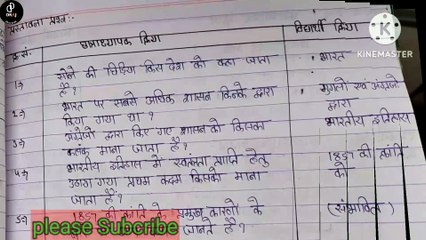 प्रस्तावना प्रश्न :-
क्र.सं. छात्राध्यापक क्रिया विद्यार्थी क्रिया
1) सोने की चिड़िया किस देश को कहा जाता भारत
है?
2) भारत पर सबसे अधिक शासन किनके द्वारा मुगलों एवं अंग्रेजों
किया गया था? द्वारा
3) अंग्रेजों द्वारा किए गए शासन को किसका भारतीय इतिहास
कलंक माना जाता है?
4) भारतीय इतिहास में स्वतंत्रता प्राप्ति हेतु 1857 की क्रांति
उठाया गया प्रथम कदम किसको माना को
जाता है?
5) 1857 की क्रांति के प्रमुख कारणों के (संभावित)
जानते हैं?
KINEMASTER
please Subcribe